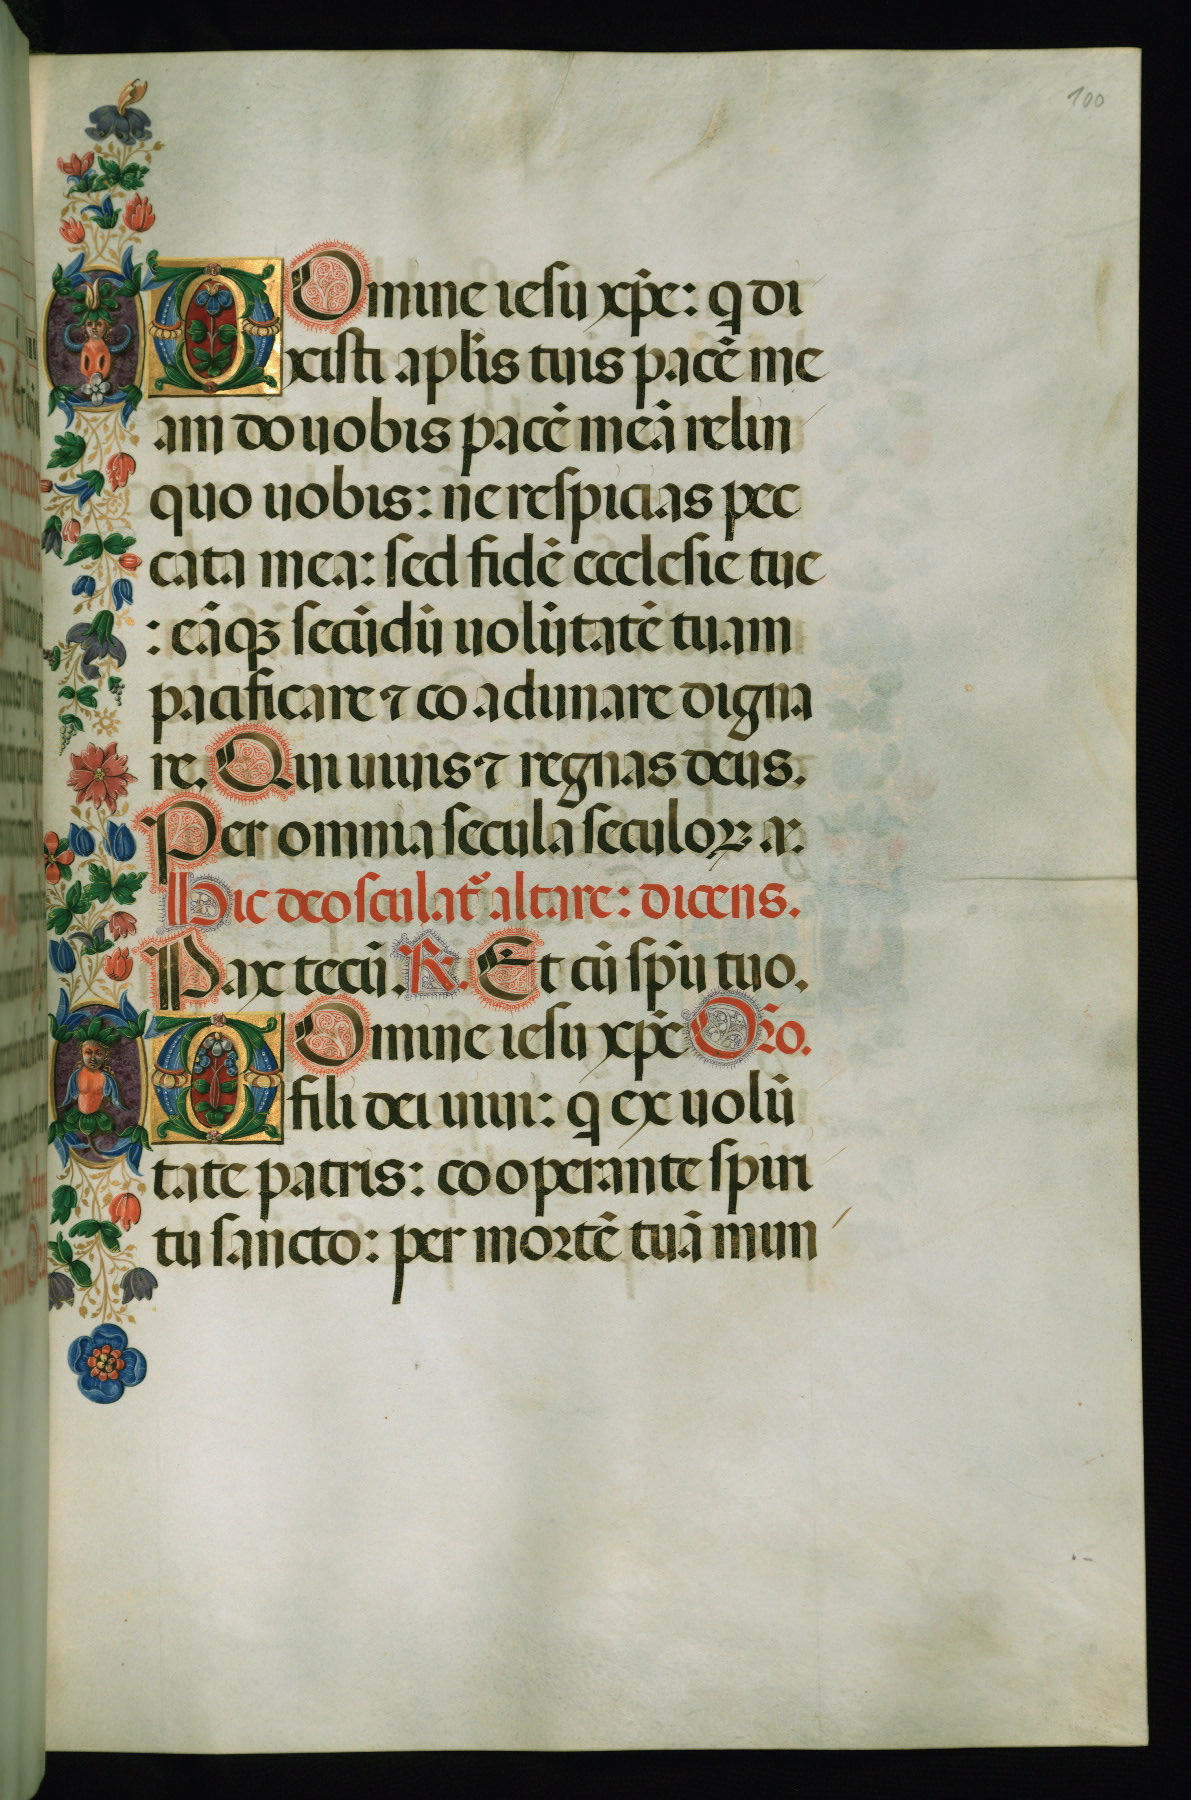 100
DOmine iesu xp̄e: q di
xisti aplīs tuis pacē me
am do uobis pacē meā relin
quo uobis: ne respicias pec
cata mea: sed fidē ecclesie tue
: eāqꝫ secūdū uolūtatē tuam
pacificare ⁊ coadunare digna
re. Qui uiuis ⁊ regnas deus.
Per omnia secula seculoꝝ a·
Hic deosculat᷑ altare: dicens.
Pax tecū. R. Et cū spū tuo.
DOmine iesu xp̄e Oro.
fili dei uiui: q ex uolū
tate patris: cooperante spiri
tu sancto: per mortē tuā mun